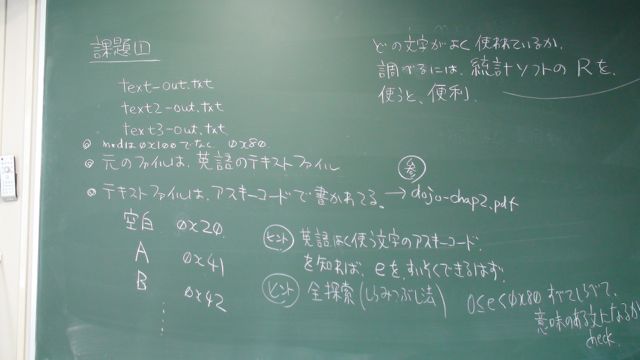 課題 1
text-out.txt
text2-out.txt
text3-out.txt
◎ modは 0x100でなく、0x80.
◎ 元のファイルは、英語のテキストファイル
◎ テキストファイルは、アスキーコードで書かれてる。 → 参 dojo-chap2.pdf
空白 0x20
A 0x41
B 0x42
どの文字がよく使われているか、
調べるには、統計ソフトの Rを、
使うと、便利.
ヒント 英語はよく使う文字のアスキーコード、
を知れば、eを、すいそくできるはず.
ヒント 全探索(しらみつぶし法) 0≤e<0x80
意味のある文になるか
check.